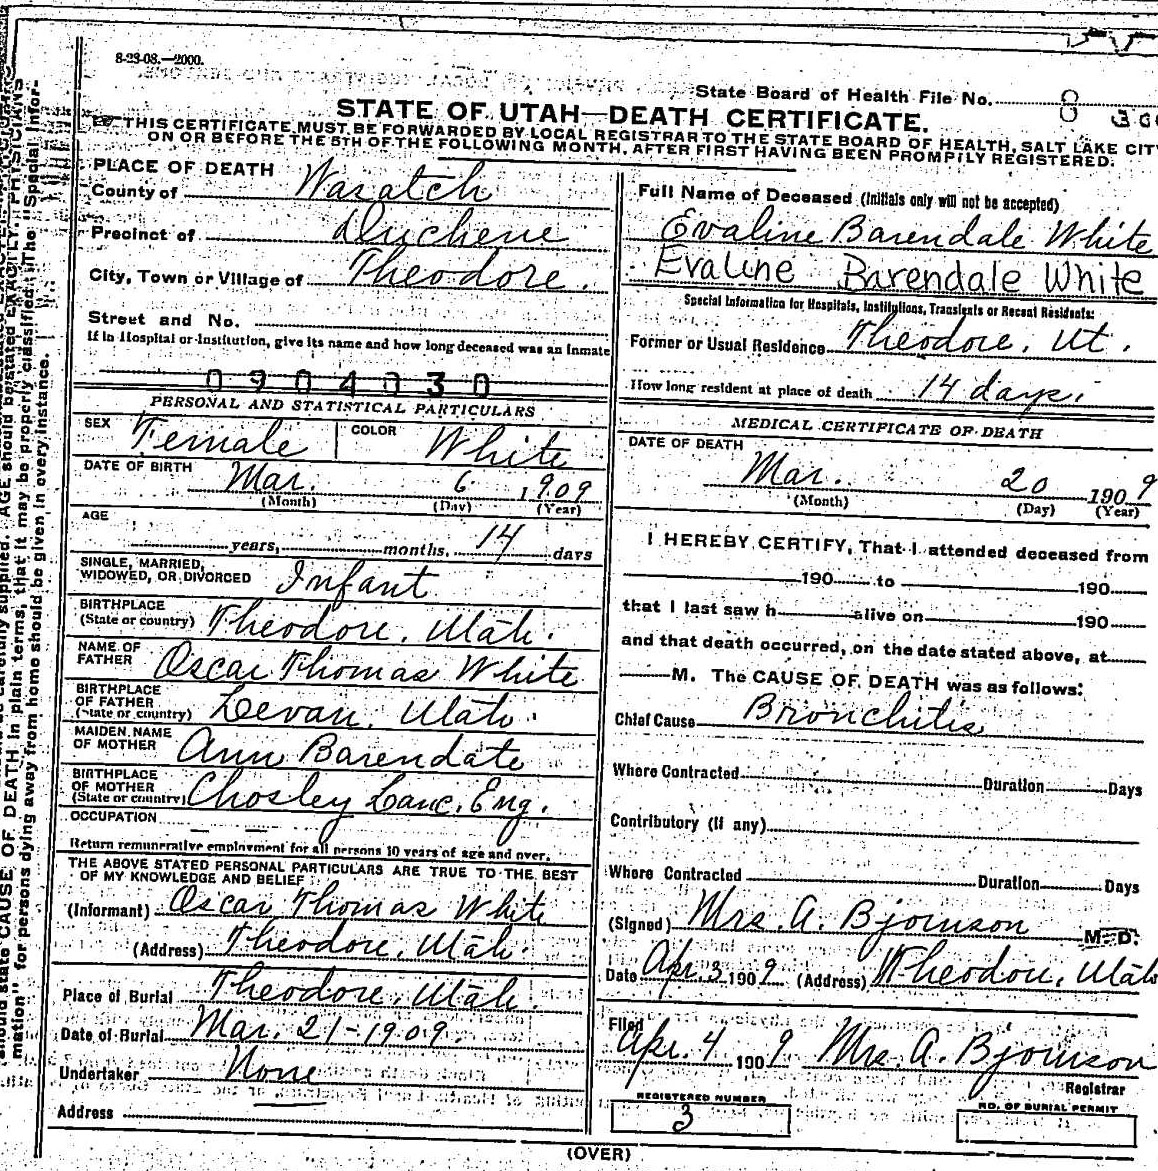 8-23-08.—2000.
State Board of Health File No. 8
STATE OF UTAH—DEATH CERTIFICATE.
THIS CERTIFICATE MUST BE FORWARDED BY LOCAL REGISTRAR TO THE STATE BOARD OF HEALTH, SALT LAKE CITY
ON OR BEFORE THE 5TH OF THE FOLLOWING MONTH, AFTER FIRST HAVING BEEN PROMPTLY REGISTERED.
PLACE OF DEATH
County of Wasatch
Precinct of Duchene
City, Town or Village of Theodore.
Street and No.
If in Hospital or Institution, give its name and how long deceased was an Inmate
0904030
PERSONAL AND STATISTICAL PARTICULARS
SEX Female COLOR White
DATE OF BIRTH Mar. 6 1909
(Month) (Day) (Year)
AGE
years, months, 14 days
SINGLE, MARRIED,
WIDOWED, OR DIVORCED Infant
BIRTHPLACE
(State or country) Theodore, Utah.
NAME OF
FATHER Oscar Thomas White
BIRTHPLACE
OF FATHER
(State or country) Levan, Utah.
MAIDEN NAME
OF MOTHER Ann Barendate
BIRTHPLACE
OF MOTHER
(State or country) Chosley Lane, Eng.
OCCUPATION — —
Return remunerative employment for all persons 10 years of age and over.
THE ABOVE STATED PERSONAL PARTICULARS ARE TRUE TO THE BEST
OF MY KNOWLEDGE AND BELIEF
(Informant) Oscar Thomas White
(Address) Theodore, Utah.
Place of Burial Theodore, Utah.
Date of Burial Mar. 21-1909.
Undertaker None
Address
Full Name of Deceased (Initials only will not be accepted)
Evaline Barendale White
Evaline Barendale White
Special Information for Hospitals, Institutions, Transients or Recent Residents:
Former or Usual Residence Theodore, Ut.
How long resident at place of death 14 days.
MEDICAL CERTIFICATE OF DEATH
DATE OF DEATH
Mar. 20 1909
(Month) (Day) (Year)
I HEREBY CERTIFY, That I attended deceased from
190 to 190
that I last saw h alive on 190
and that death occurred, on the date stated above, at
M. The CAUSE OF DEATH was as follows:
Chief Cause Bronchitis
Where Contracted Duration Days
Contributory (if any)
Where Contracted Duration Days
(Signed) Mrs. A. Bjornson M. D.
Date Apr. 3 1909 (Address) Theodore, Utah
Filed Apr. 4 1909 Mrs. A. Bjornson
Registrar
REGISTERED NUMBER
3
NO. OF BURIAL PERMIT
(OVER)